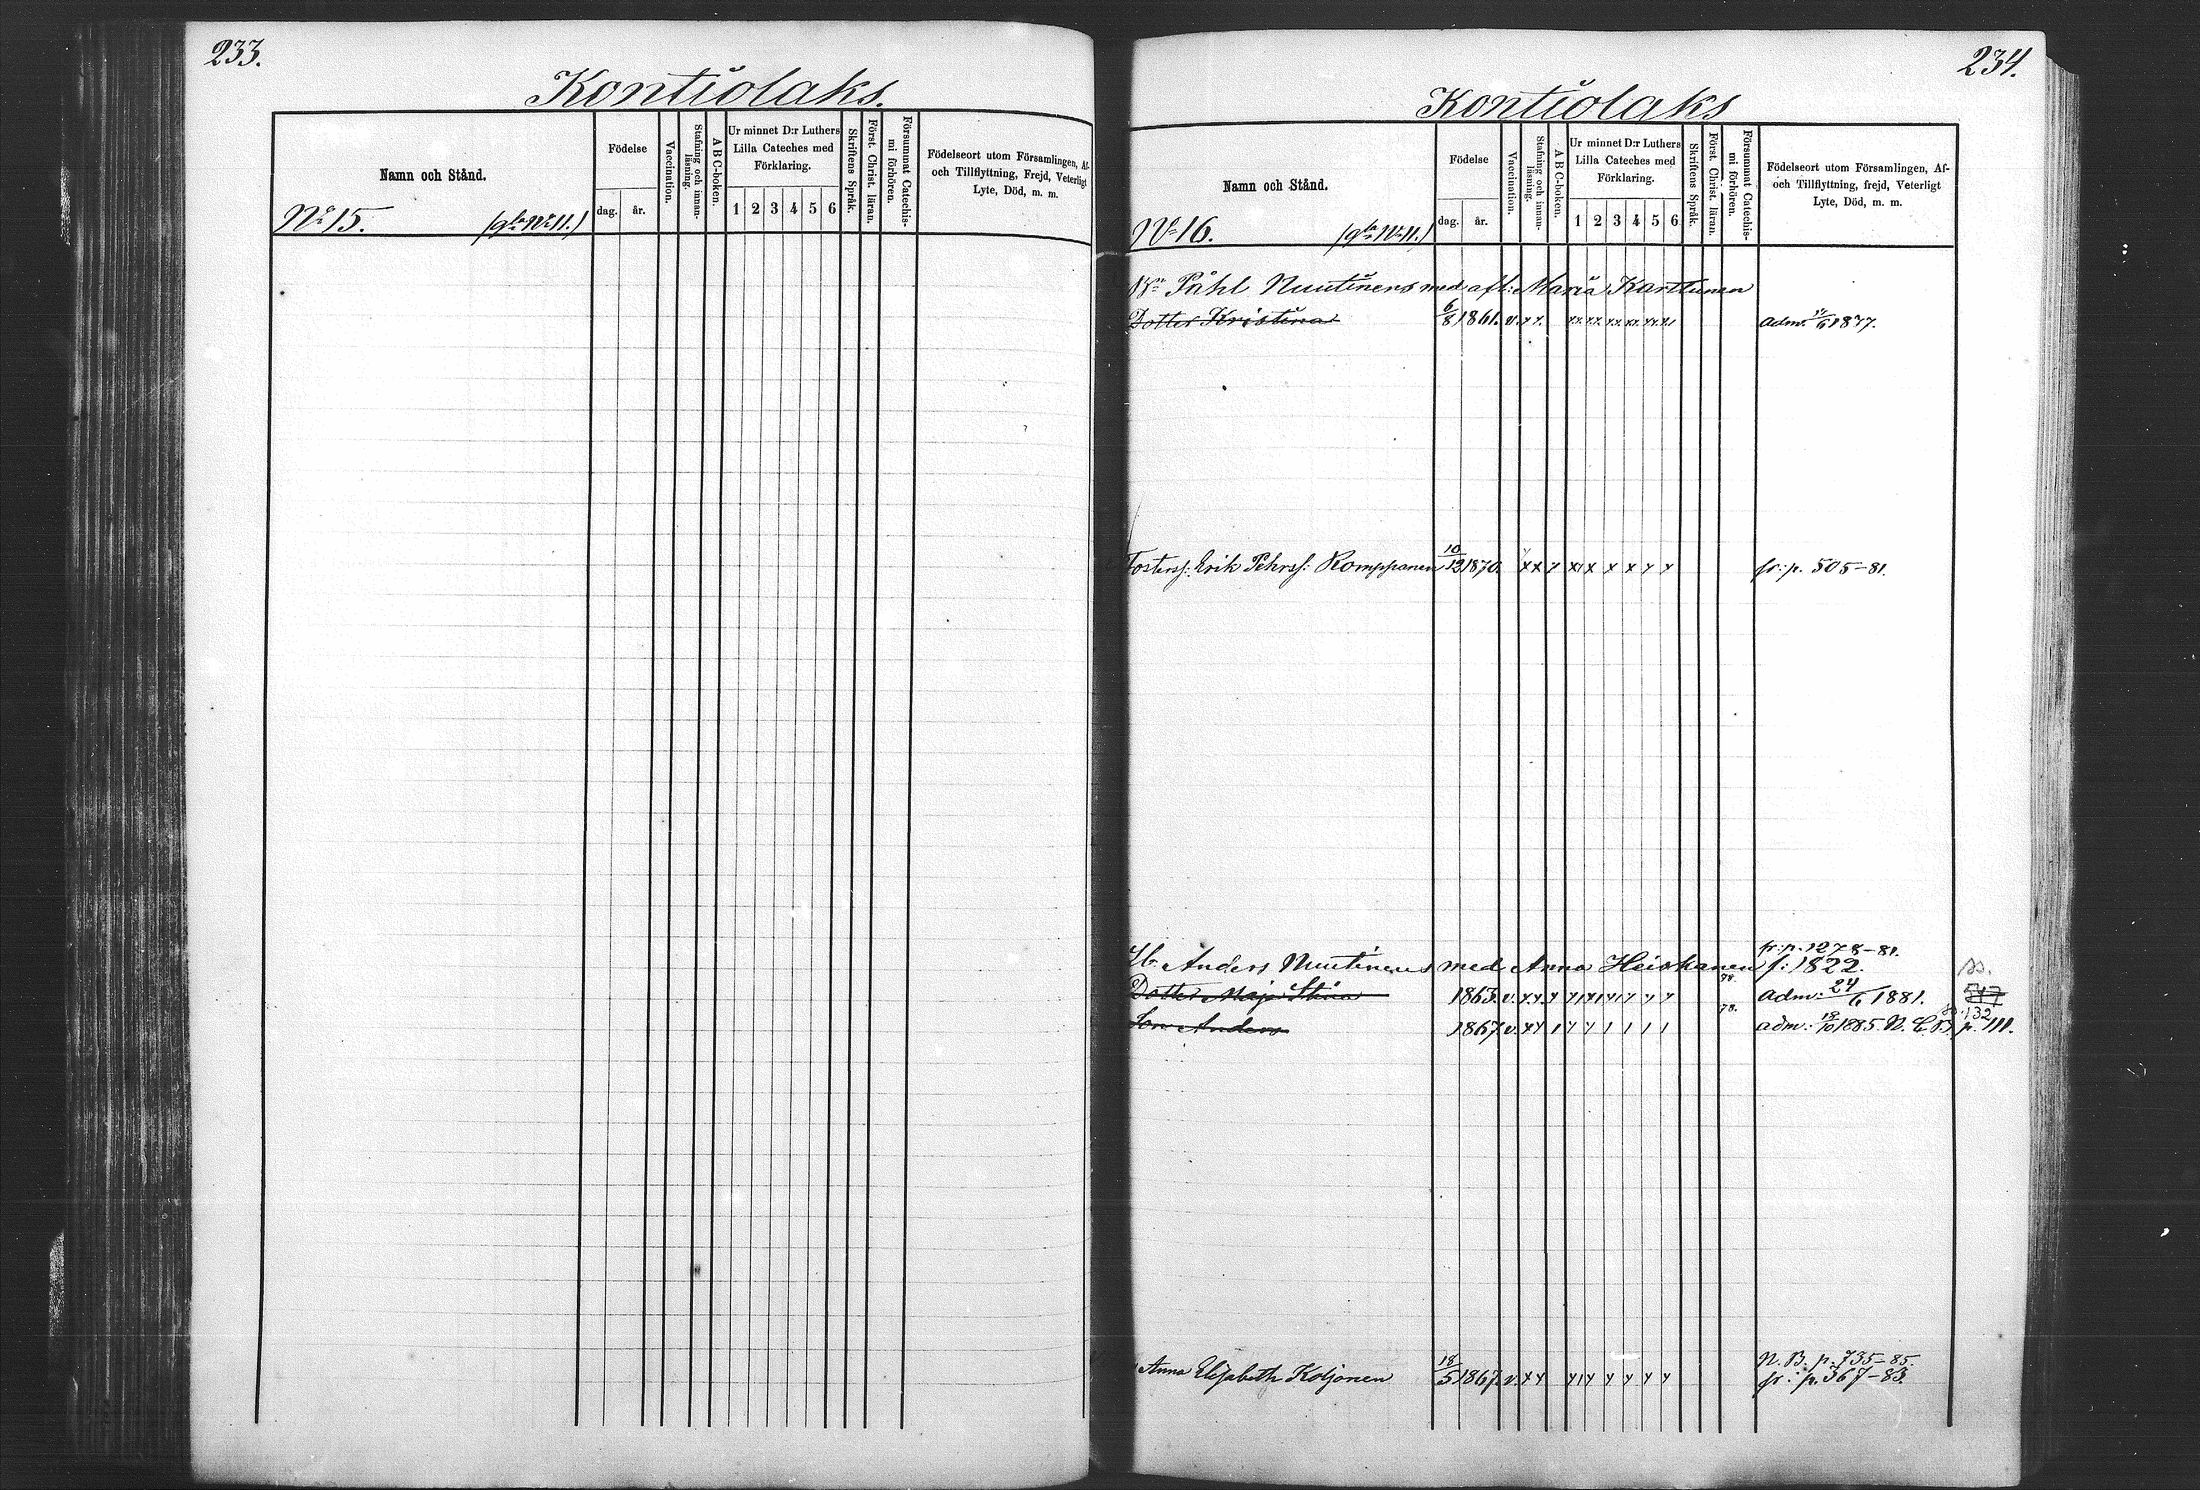 233.
Kontiolaks.
Namn och Stånd.
Födelse
dag. år.
Vaccination.
Stafning och innan-läsning.
A B C-boken.
Ur minnet D:r Luthers
Lilla Cateches med
Förklaring.
1 2 3 4 5 6
Skriftens Språk.
Först. Christ. läran.
Försummat Catechis-
mi förhören.
Födelseort utom Församlingen, Af-
och Tillflyttning, Frejd, Veterligt
Lyte, Död, m. m.
No 15. (gla No 11.)
234.
Kontiolaks
Namn och Stånd.
Födelse
dag. år.
Vaccination.
Stafning och innan-läsning.
A B C-boken.
Ur minnet D:r Luthers
Lilla Cateches med
Förklaring.
1 2 3 4 5 6
Skriftens Språk.
Först. Christ. läran.
Försummat Catechis-
mi förhören.
Födelseort utom Församlingen, Af-
och Tillflyttning, frejd, Veterligt
Lyte, Död, m. m.
No 16. (gla No 11.)
Påhl Nuutinens med afl: Maria Karttunen
Dotter Kristina 6/8 1861. v. adm.
Fosters: Erik Pehrss: Romppanen 10/12 1870. fr: p. 505-81.
fr: p. 1278-81.
Anders Nuutinens med Anna Heiskanen f: 1822.
78.
Dotter Maja Stina 1863. v. adm: 24/6 1881. 547
78.
132
Son Anders 1867 v. adm: 18/10 1885. N. C. B. p. 111.
N. B. p. 735-85.
Anna Elisabeth Koljonen 18/5 1867. v. fr: p. 367-83.